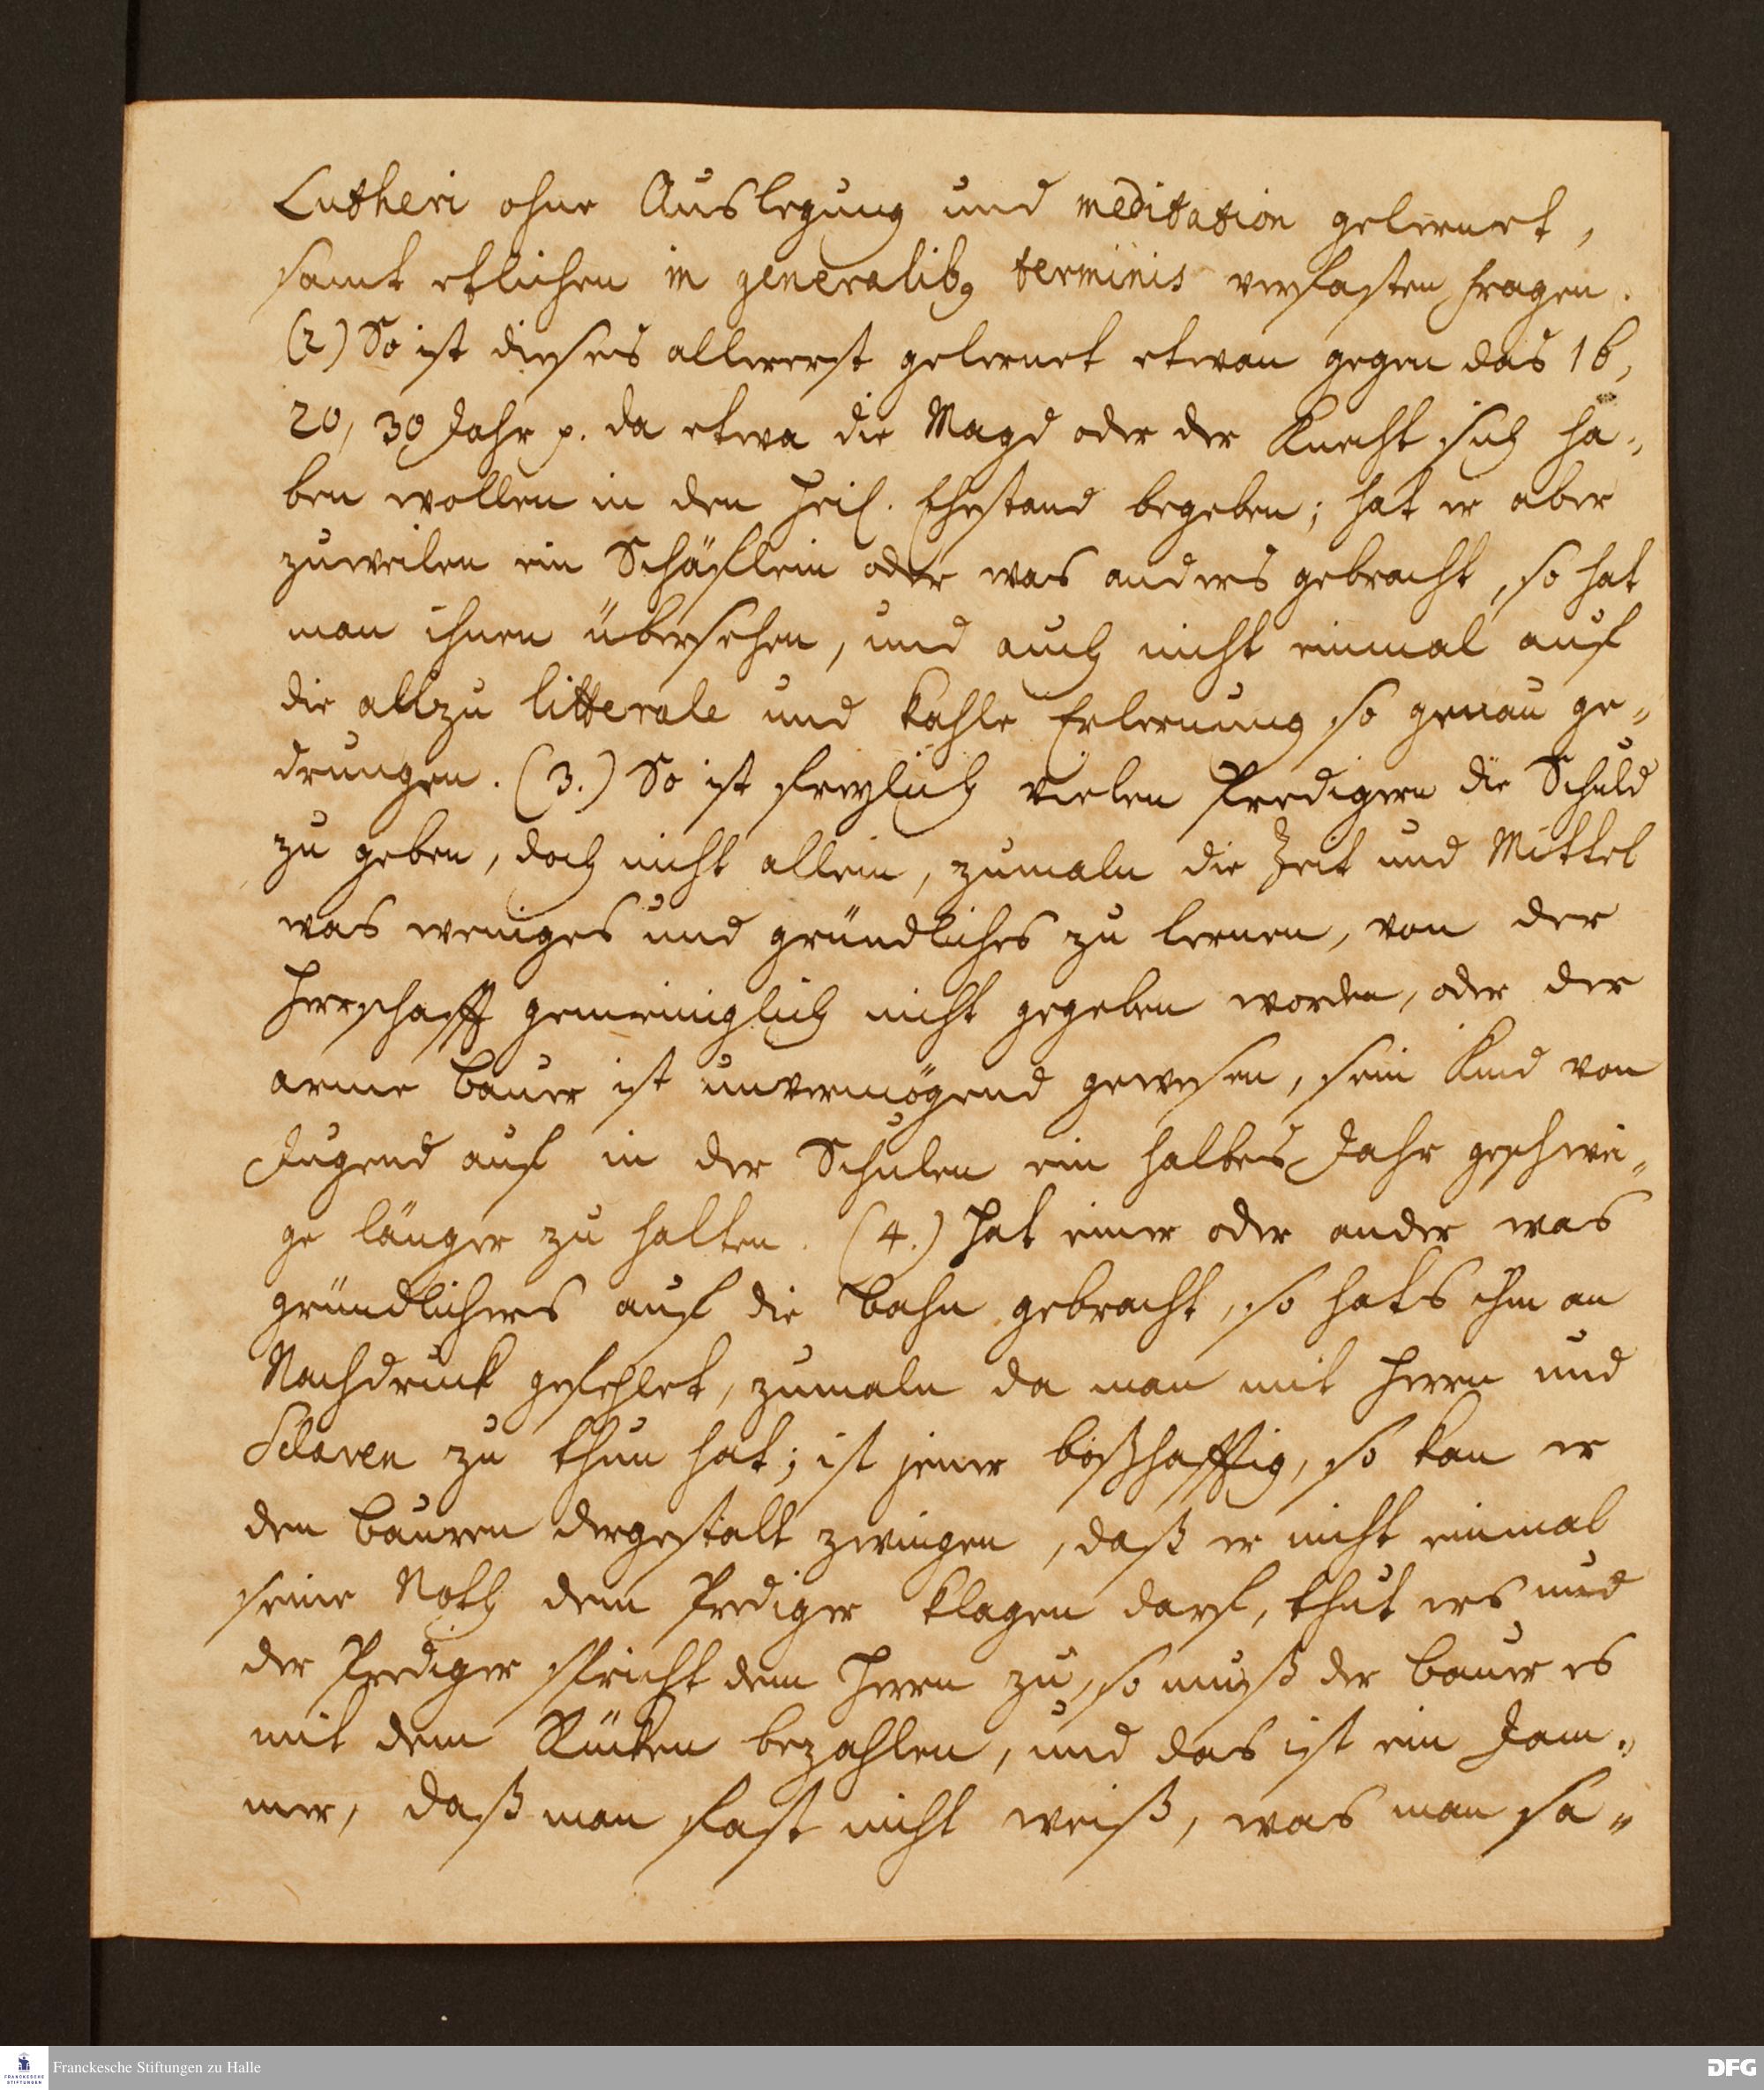 Lutheri ohne Auslegung und meditation gelernet,
samt etlichen in generalibq terminis verfasten fragen.
(2) So ist dieses allererst gelernet etwan gegen das 16,
20, 30 Jahr p. da etwa die Magd oder der Knecht sich ha-
ben wollen in den Heil. Ehestand begeben; hat er aber
zuweilen ein Schäflein oder was anders gebracht, so hat
man ihnen übersehen, und auch nicht einmal auf
die allzu litterale und kahle Erlernung so genau ge-
drungen. (3.) So ist freylich vielen Predigern die Schuld
zu geben, doch nicht allein, zumaln die Zeit und Mittel
was weniges und gründliches zu lernen, von der
Herrschafft gemeiniglich nicht gegeben worden, oder der
arme Bauer ist unvermögend gewesen, sein Kind von
Jugend auf in der Schulen ein halbes Jahr geschwei-
ge länger zu halten. (4.) Hat einer oder ander was
gründlichers auf die Bahn gebracht, so hats ihm an
Nachdruck gefehlet, zumaln da man mit Herrn und
Sclaven zu thun hat; ist jener boßhafftig, so kan er
den Bauren dergestalt zwingen, daß er nicht einmal
seine Noth dem Prediger klagen darf, thut ers und
der Prediger spricht dem Herrn zu, so muß der Bauer es
mit dem Rücken bezahlen, und das ist ein Jam-
mer, daß man fast nicht weiß, was man sa-
Franckesche Stiftungen zu Halle
FRANCKESCHE
STIFTUNGEN
DFG